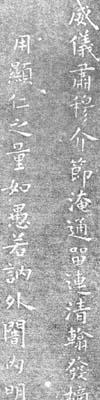 威儀肅穆介節淹通單連清翰發摛
用顯仁之量如愚若訥外闇內明